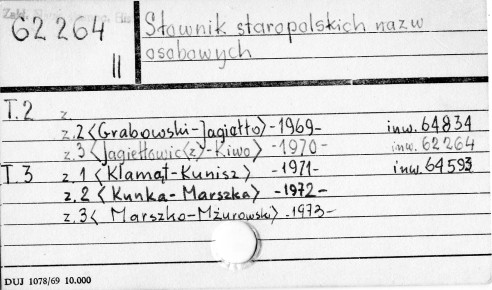 62 264
II
Słownik staropolskich nazw
osobowych
T.2 z.
z.2 <Grabowski-Jagiełło> -1969- inw. 64834
z.3 <Jagiełłowic(z)-Kiwo> -1970- inw. 62264
T.3 z.1 <Kłamąt-Kunisz> -1971- inw. 64593
z.2 <Kunka-Marszka> -1972-
z.3 < Marszko-Mżurowski> -1973-
DUJ 1078/69 10.000